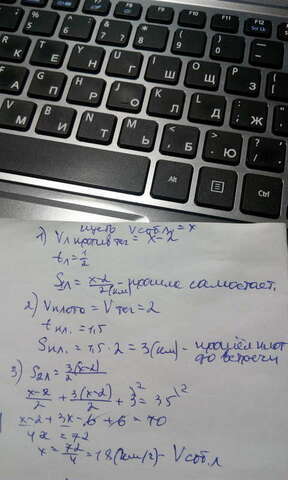 F6 F7 F8 F9 F10 F11 F12
% 5 ^ 6 & 7 * 8 ( 9 ) 0
R К T Е Y Н U Г I Ш O Щ P З
F А G П H Р J О K Л L Д : ; Ж
V М B И N Т M Ь < , Б > . Ю ? /
Alt Ctrl
пусть Vсоб.л = x
1) Vл против теч = x-2
tл = 1/2
Sл = x-2/2 (км) - прошла самостоят.
2) Vплота = Vтеч = 2
t пл. = 1,5
Sпл. = 1,5 · 2 = 3 (км) - прошёл плот до встречи
3) S2л = 3(x-2)/2
x-2/2 + 3(x-2)/2 + 3\2 = 35\2
x-2 + 3x - 6 + 6 = 70
4x = 72
x = 72/4 = 18 (км/г) - Vсоб.л